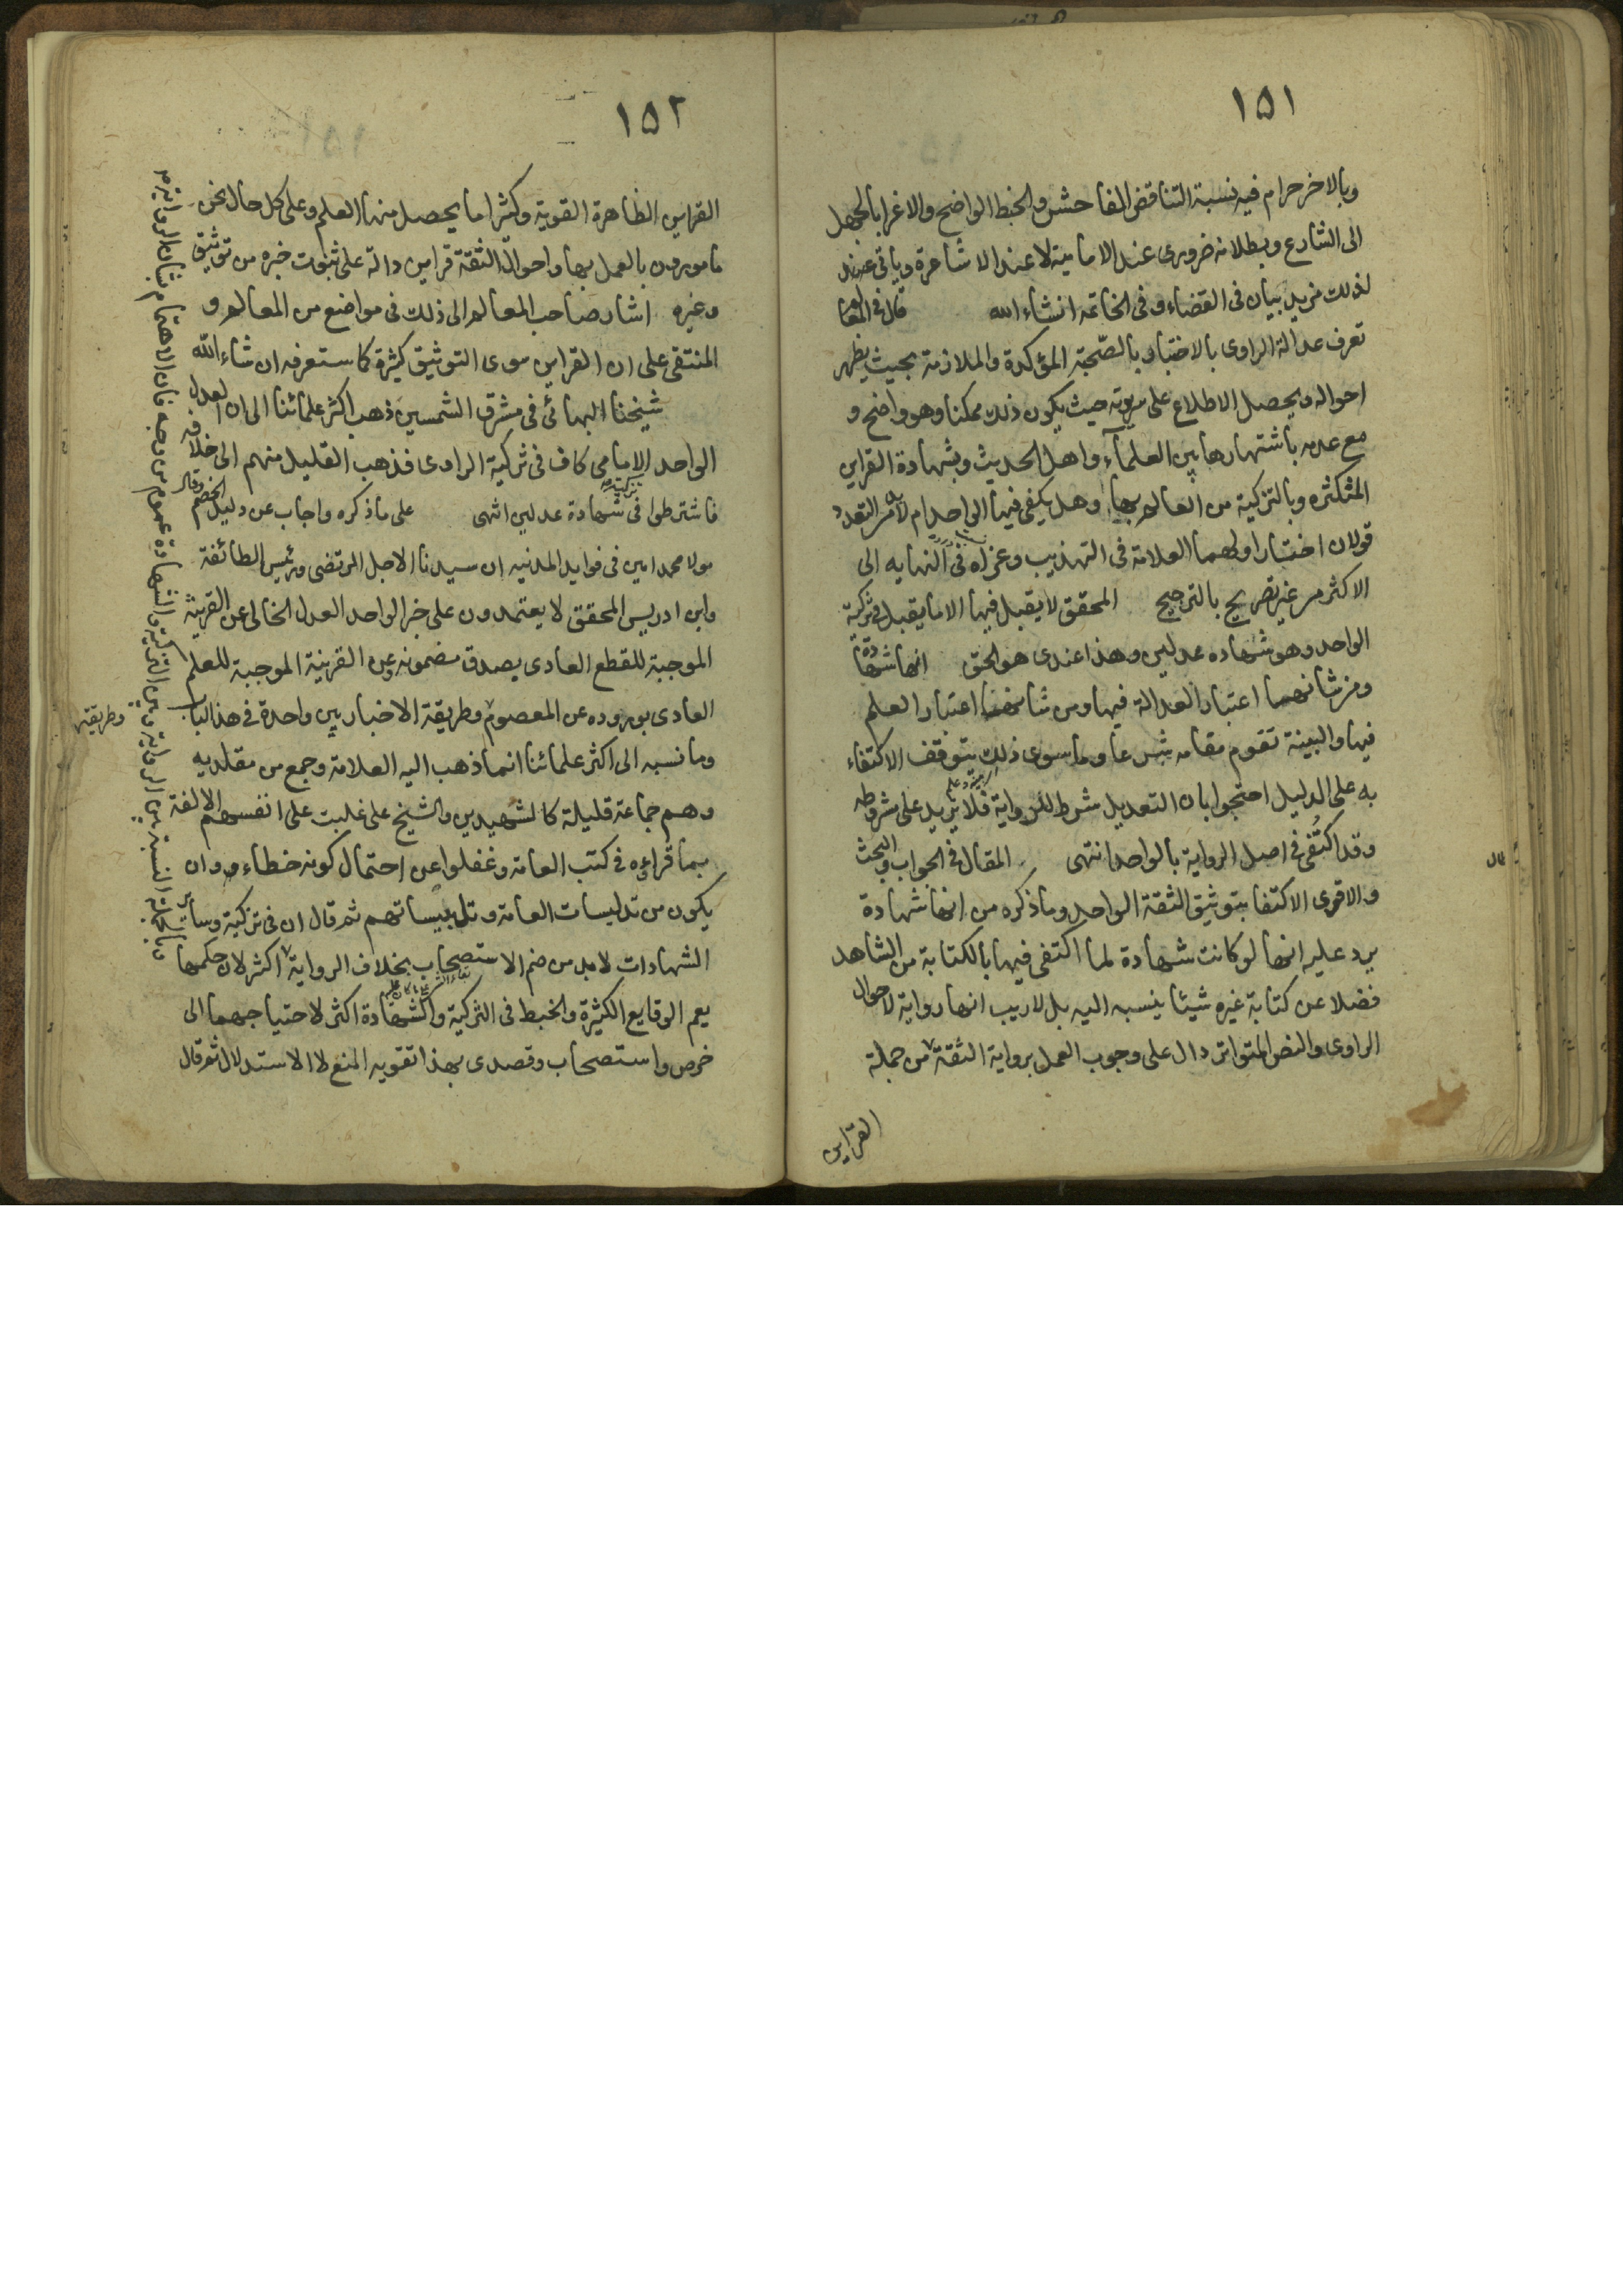 ١٥١
وبالاخر حرام فيه نسبة التناقض الفاحش والخبط الواضح والاغرا بالجهل
الى الشارع وبطلانه ضرورى عند الامامية لا عند الاشاعرة وياتى عن
لذلك مزيد بيان فى القضاء وفى الخاتمه انشاء الله قال فى المعالم
تعرف عدالة الراوى بالاختبار بالصحبة المؤكدة والملازمة بحيث يظهر
احواله ويحصل الاطلاع على سريرته حيث يكون ذلك ممكنا وهو واضح و
مع عدمه باشتهارها بين العلماء واهل الحديث وبشهادة القراين
المتكثره وبالتزكية من العالم بها وهل يكفى فيها الواحد ام لابد من التعدد
قولان اختار اولهما العلامة فى التهذيب وعزاه فى النهايه الى
الاكثر من غير تصريح بالترجيح المحقق لا يقبل فيها الا ما يقبل فى تزكية
الواحد وهو شهاده عدلين وهذا عندى هو الحق انها شهادة
ومن شانهما اعتبار العدالة فيها ومن شانها اعتبار العلم
فيها والبينة تقوم مقامه شرعا وما سوى ذلك يتوقف الاكتفاء
به على الدليل احتجوا بان التعديل شرط للرواية فلا يزيد على شروطه
وقد اكتفى فى اصل الرواية بالواحد انتهى المقال فى الجواب والبحث
والاقوى الاكتفا بتوثيق الثقة الواحد وما ذكره من انها شهادة
يرد عليه انها لو كانت شهادة لما اكتفى فيها بالكتابة من الشاهد
فضلا عن كتابة غيره شيئا ينسبه اليه بل لاريب انها رواية لاحوال
الراوى والنص المتواتر دال على وجوب العمل برواية الثقة من جملة
القراين
١٥٢
القراين الظاهرة القوية وكثيرا ما يحصل منها العلم وعلى كل حال نحن
مامورون بالعمل بها واحوال الثقة قراين دالة على ثبوت خبره من توثيق
وغيره اشار صاحب المعالم الى ذلك فى مواضع من المعالم و
المنتقى على ان القراين سوى التوثيق كثيرة كما ستعرفه ان شاء الله
شيخنا البهائى فى مشرق الشمسين ذهب اكثر علمائنا الى ان العدل
الواحد الامامى كاف فى تزكية الراوى فذهب القليل منهم الى خلافه
فاشترطوا فى تزكيته شهادة عدلين انتهى على ماذكره واجاب عن دليل الخصم وقال
مولا محمد امين فى فوايد المدنيه ان سيدنا الاجل المرتضى ورئيس الطائفة
وابن ادريس المحقق لا يعتمدون على خبر الواحد العدل الخالى عن القرينة
الموجبة للقطع العادى بصدق مضمونه وعن القرينة الموجبة للعلم
العادى بوروده عن المعصوم وطريقة الاخباريين واحدة فى هذا الباب
وما نسبه الى اكثر علمائنا انما ذهب اليه العلامة وجمع من مقلديه
وهم جماعة قليلة كالشهيدين والشيخ على غلبت على انفسهم الالفة
بما قراءوه فى كتب العامة وغفلوا عن احتمال كونه خطاء وان
يكون من تدليسات العامة وتلبيساتهم ثم قال ان فى تزكية وسائر
الشهادات لابد من ضم الاستصحاب بخلاف الرواية اكثر لان حكمها
يعم الوقايع الكثيرة والخبط فى التزكية والشهادة اكثر لاحتياجهما الى
خرص واستصحاب وقصدى بهذا تقويه المنع لا الاستدلال ثم قال
وطريقتها
قال